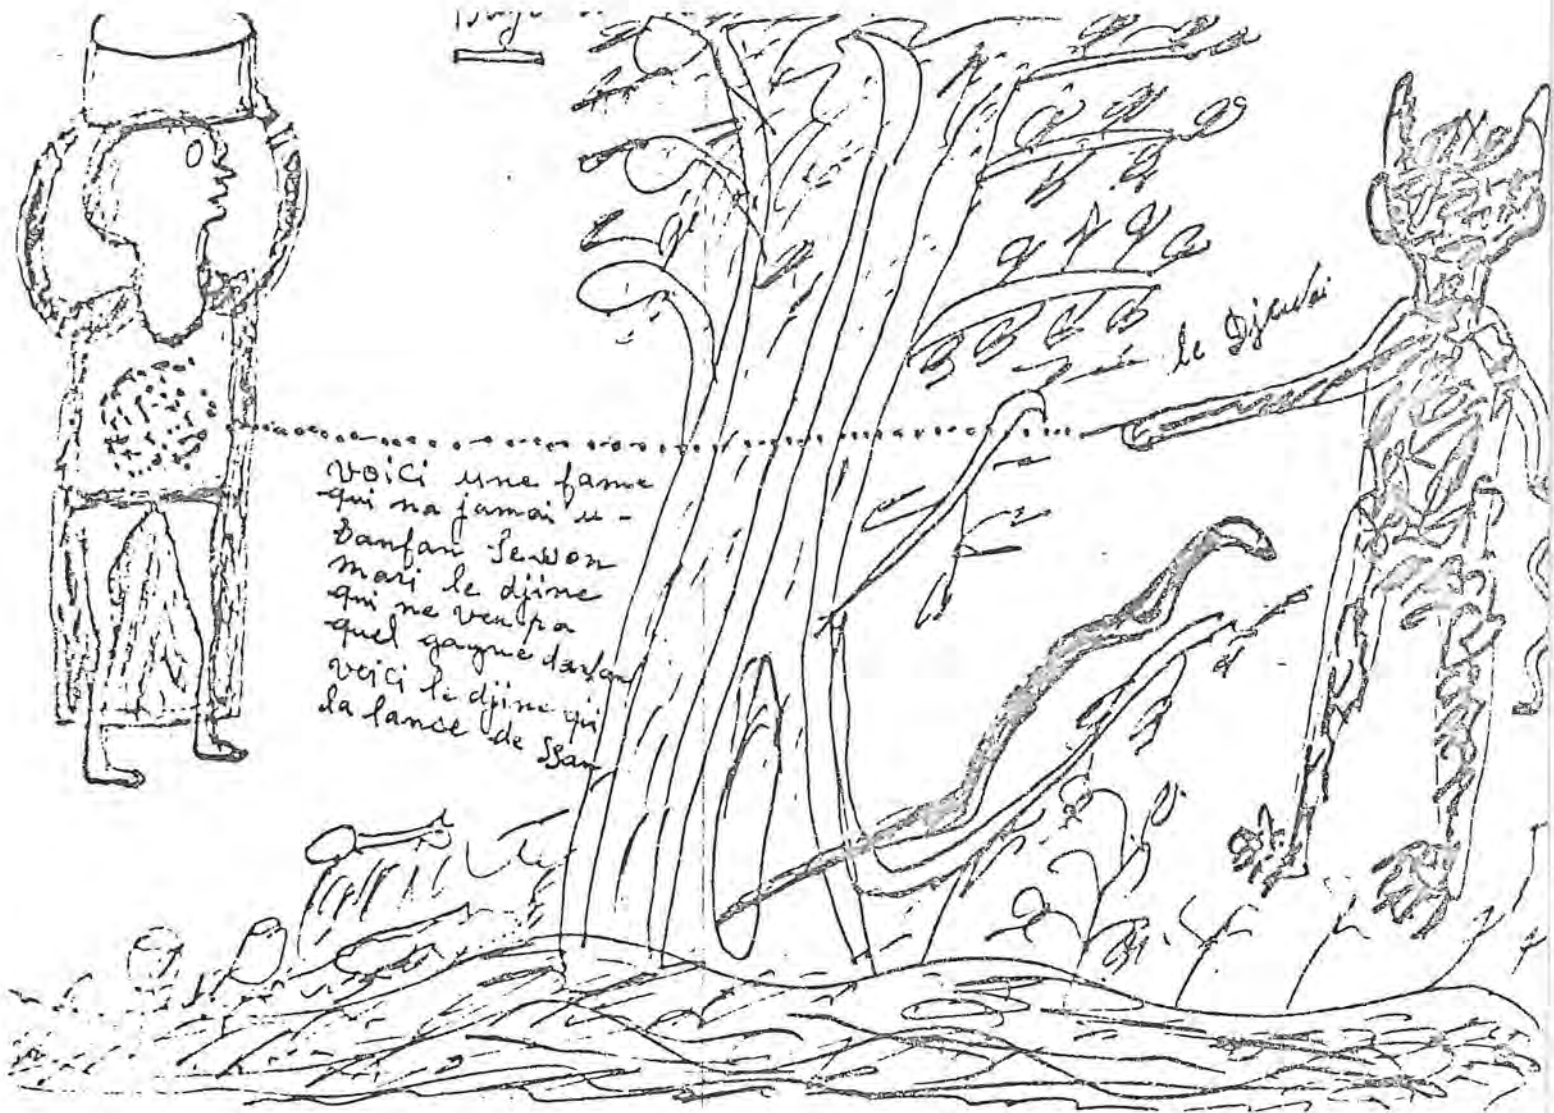 voici une fame
qui na jamai u-
danfan
mari le djine
qui ne veu pa
quel gagne danfan
voici le djine qui
la lance de
le